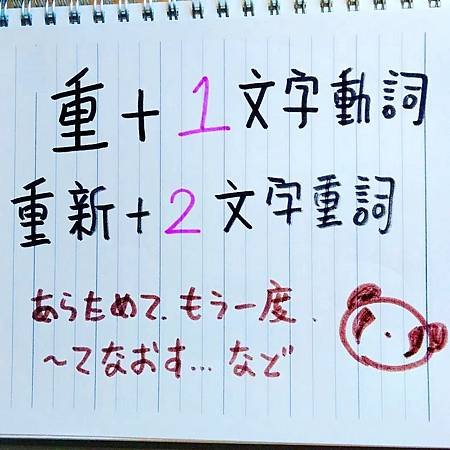 重+1文字動詞
重新+2文字重詞
あらためて、もう一度、
〜てなおす...など